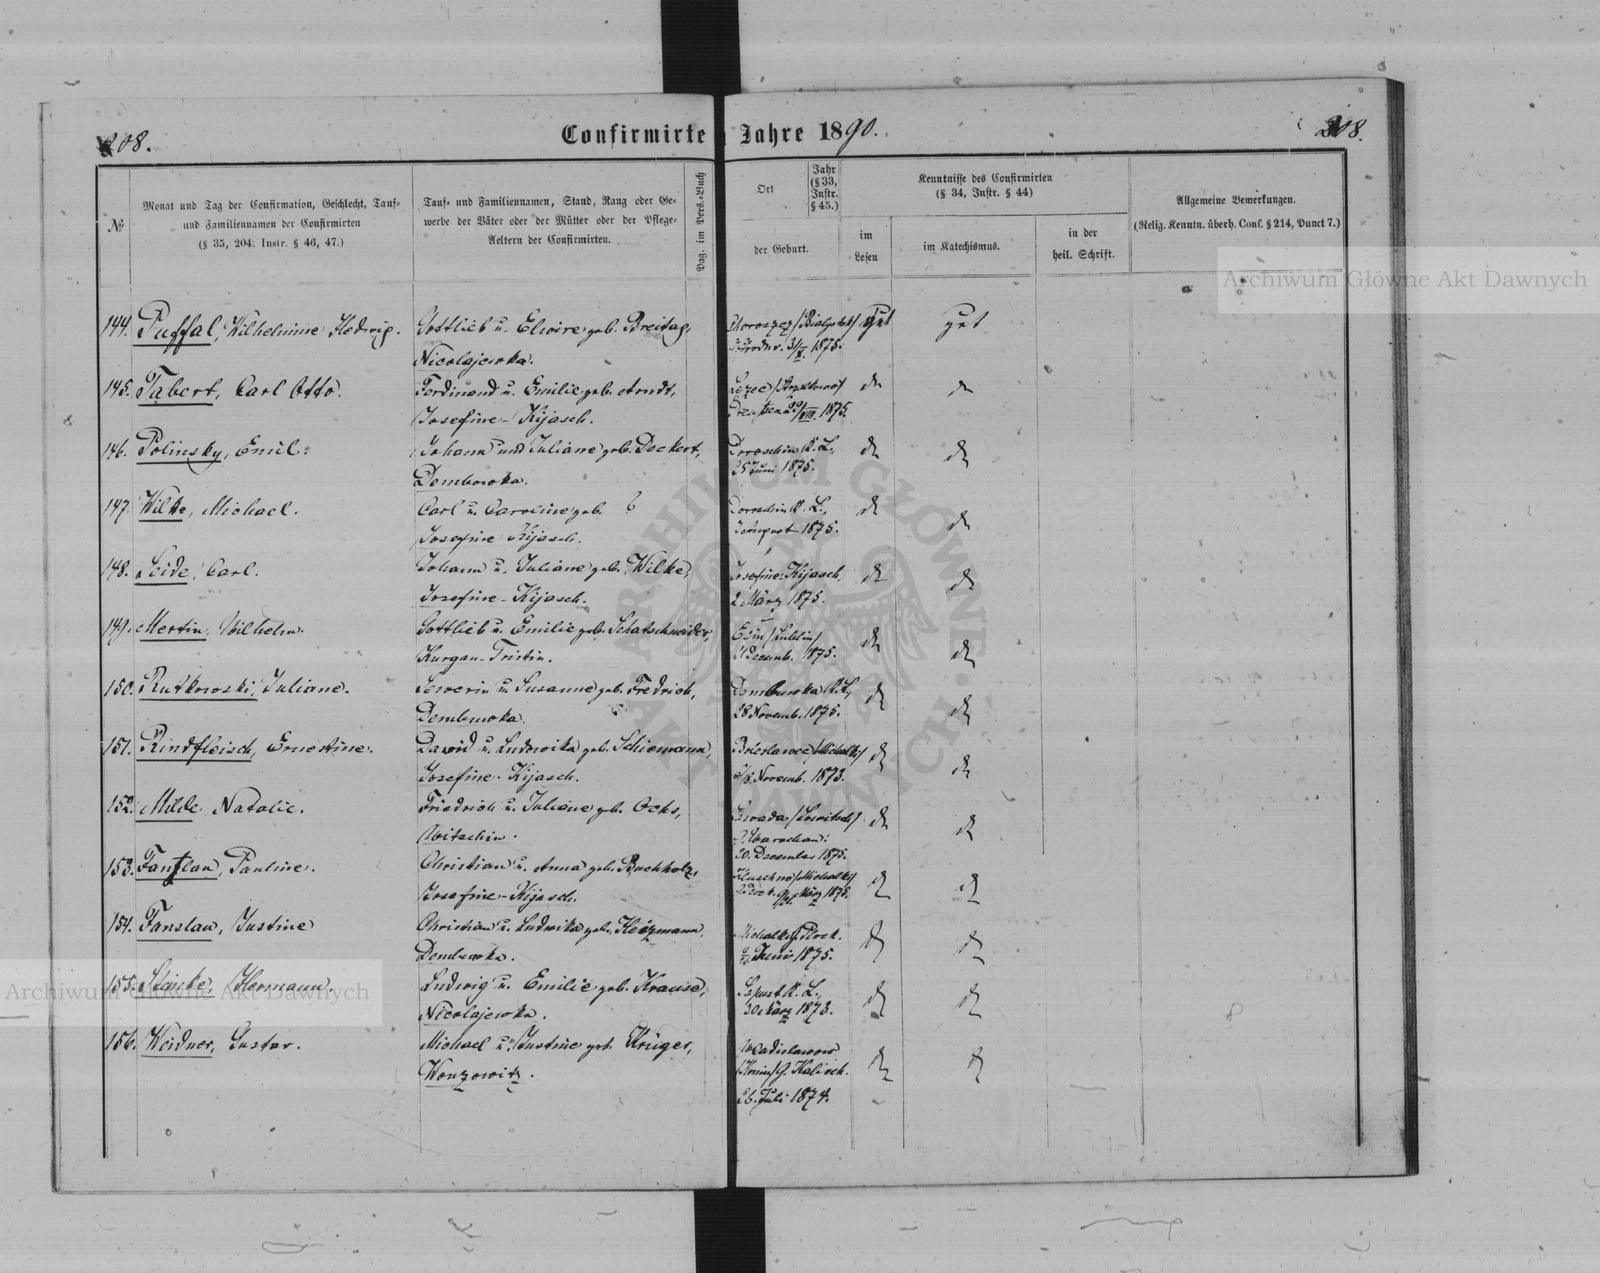 208.
Confirmirte
Jahre 1890.
208.
№
Monat und Tag der Confirmation, Geschlecht, Tauf-
und Familiennamen der Confirmirten
(§ 35, 204; Instr. § 46, 47.)
Tauf- und Familiennamen, Stand, Rang oder Ge-
werbe der Väter oder der Mütter oder der Pflege-
Aeltern der Confirmirten.
Pag. im Pers.-Buch
Ort
der Geburt.
Jahr
(§ 33,
Instr.
§ 45.)
Kenntnisse des Confirmirten
(§ 34, Instr. § 44)
im
Lesen
im Katechismus.
in der
heil. Schrift.
Allgemeine Bemerkungen.
(Relig. Kenntn. überh. Conf. § 214, Punct 7.)
144. Puffal, Wilhelmine Hedwig.
Gottlieb u. Elwire geb. Breitag,
Nicolajewka.
1875.
gut
gut
145. Tabert, Carl Otto.
Ferdinand u. Emilie geb. Arndt,
Josefine-Kijasch.
1875.
do
do
146. Polinsky, Emil.
Johann und Juliane geb. Deckert,
Dembowka.
Doroschin K. L.,
25 Juni 1875.
do
do
147. Wilke, Michael.
Carl u. Caroline geb. ?
Josefine Kijasch.
Doroschin K. L.,
1875.
do
do
148. Seide, Carl.
Johann u. Juliane geb. Wilke,
Josefine-Kijasch.
Josefine-Kijasch,
2 März 1875.
do
do
149. Mertin, Wilhelm.
Gottlieb u. Emilie geb. Schatschneider,
Kurgan-Tristin.
/Lublin/
Decemb. 1875.
do
do
150. Rutkowski, Juliane.
Sewerin u. Susanne geb. Fredrich,
Dembowka.
Dembowka K. L.,
28 Novemb. 1875.
do
do
151. Rindfleisch, Ernestine.
Dawid u. Ludowika geb. Schiemann,
Josefine-Kijasch.
Boleslawec /Michalky/
Novemb. 1873.
do
do
152. Milde, Natalie.
Friedrich u. Juliane geb. Ochs,
Witschin.
G. Warschau:
20. December 1875.
do
do
153. Fanslau, Pauline.
Christian u. Anna geb. Buchholz,
Josefine-Kijasch.
März 1875.
do
do
154. Fanslau, Justine
Christian u. Ludwika geb. Heizmann,
Dembowka.
Michalky G. Plock.
Juni 1875.
do
do
155. Stanke, Hermann.
Ludwig u. Emilie geb. Krause,
Nicolajewka.
Sapust K. L.,
30 März 1873.
do
do
156. Weidner, Gustav.
Michael u. Justine geb. Krüger,
Wonzowitz.
Wladislawow
/Konin/ G. Kalisch.
26. Juli 1874.
do
do
Archiwum Główne Akt Dawnych
Archiwum Główne Akt Dawnych
ARCHIWUM GŁÓWNE
AKT DAWNYCH